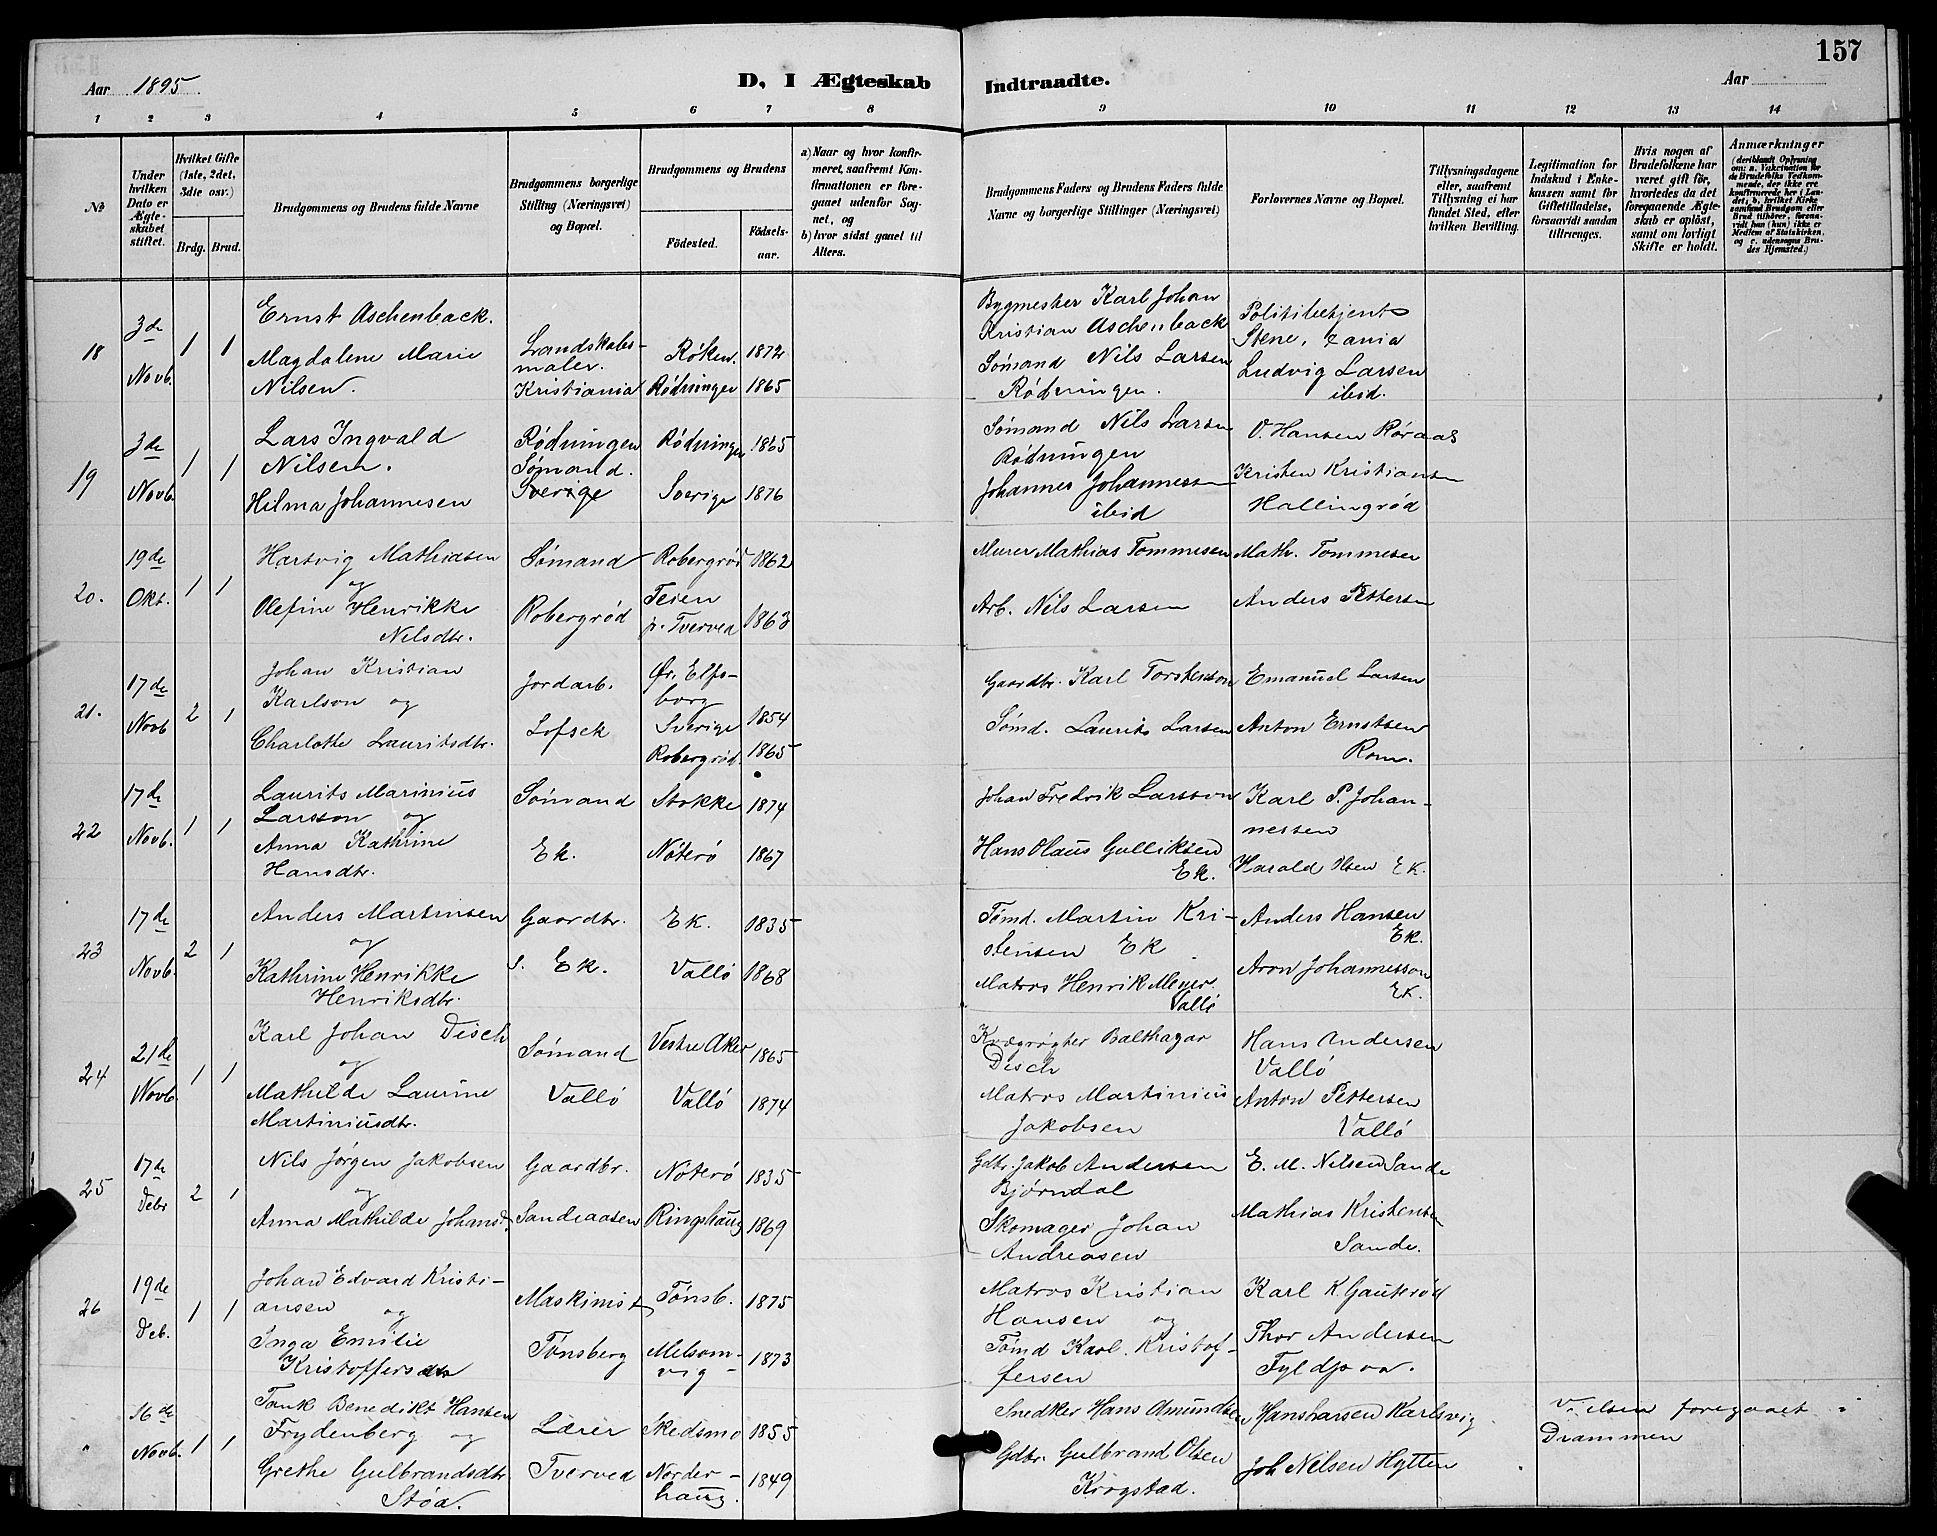 157
Aar 1895.
D, I Ægteskab Indtraadte.
Aar
1 2 3 4 5 6 7 8 9 10 11 12 13 14
No
Under hvilken Dato er Ægteskabet stiftet.
Hvilket Gifte (1ste, 2det, 3die osv.)
Brdg. Brud.
Brudgommens og Brudens fulde Navne
Brudgommens borgerlige Stilling (Næringsvei) og Bopæl.
Brudgommens og Brudens
Födested.
Födselsaar.
a) Naar og hvor konfirmeret, saafremt Konfirmationen er foregaaet udenfor Sognet, og
b) hvor sidst gaaet til Alters.
Brudgommens Faders og Brudens Faders fulde Navne og borgerlige Stillinger (Næringsvei)
Forlovernes Navne og Bopæl.
Tillysningsdagene eller, saafremt Tillysning ei har fundet Sted, efter hvilken Bevilling.
Legitimation for Indskud i Enkekassen samt for Giftetilladelse, forsaavidt saadan tiltrænges.
Hvis nogen af Brudefolkene har veret gift för, hvorledes da det foregaaende Ægteskab er oplöst, samt om lovligt Skifte er holdt.
Anmærkninger
(deriblandt Oplysning om: a. Vakcination for de Brudefolks Vedkommende, der ikke ere konfirmerede her i Landet; b. hvilket Kirkesamfund Brudgom eller Brud tilhörer, forsaavidt han (hun) ikke er Medlem af Statskirken, og c. udensogns Brudes Hjemsted.)
18
3de Novb.
1 1
Ernst Aschenback.
Magdalene Marie
Nilsen.
Landskabs-
maler.
Kristiania
Røken. 1872
Rødningen 1865
Bygmester Karl Johan
Kristian Aschenback
Sømand Nils Larsen
Rødningen.
Politibetjent
Stene, Xania
Ludvig Larsen
ibid.
19
3de Novb.
1 1
Lars Ingvald
Nilsen.
Hilma Johannesen
Rødningen
Sømand.
Sverige
Rødningen 1865
Sverige 1876
Sømand Nils Larsen
Rødningen
Johannes Johannessen
ibid
O. Hansen Røraas
Kristen Kristiansen
Hallingrød
20.
19de Okt.
1 1
Hartvig Mathiasen
og
Olefine Henrikke
Nilsdtr.
Sømand
Robergrød
Robergrød 1862
Teien
p. Tverved 1863
Murer Mathias Tommesen
Arb. Nils Larsen
Math. Tommesen
Anders Pettersen
21.
17de Novb
2 1
Johan Kristian
Karlson og
Charlotte Lauritsdtr.
Jordarb.
Lofsek
Ør. Elfs-
borg
Sverige 1854
Robergrød. 1865
Gaardbr. Karl Torstenson
Sømd. Laurits Larsen
Emanuel Larsen
Anton Ernstsen
Rom.
22
17de Novb.
1 1
Laurits Marinius
Larsson og
Anna Kathrine
Hansdtr.
Sømand
Ek.
Stokke 1874
Nøterø 1867
Johan Fredrik Larsson
Hans Olaus Gulliksen
Ek.
Karl P. Johan-
nessen
Harald Olsen Ek.
23
17de Novb.
2 1
Anders Martinsen
og
Kathrine Henrikke
Henriksdtr.
Gaardbr.
s. Ek.
Ek. 1835
Vallø 1868
Tømd. Martin Kri-
stensen Ek
Matros Henrik Meyer.
Vallø
Anders Hansen
Ek.
Aron Johannesson
Ek.
24
21de Novb.
1 1
Karl Johan Disch
og
Mathilde Laurine
Martiniusdtr.
Sømand
Vallø
Vestre Aker 1865
Vallø 1874
Kvægrøgter Balthazar
Disch
Matros Martinius
Jakobsen
Hans Andersen
Vallø
Anton Pettersen
Vallø
25
17de Debr
2 1
Nils Jørgen Jakobsen
og
Anna Mathilde Johansd.
Gaardbr.
Sandeaasen
Nøterø 1835
Ringshaug 1869
Gdbr. Jakob Andersen
Bjørndal
Skomager Johan
Andreasen
E. M. Nilsen Sande
Mathias Kristensen
Sande.
26
19de Deb.
1 1
Johan Edvard Kristi-
ansen og
Inga Emilie
Kristoffersdtr
Maskinist
Tønsberg
Tønsb. 1875
Melsom-
vig 1873
Matros Kristian
Hansen og
Tømd Karl Kristof-
fersen
Karl K. Gauterød
Thor Andersen
Fyldpaa.
"
16de Novb.
1 1
Tank Benedikt Hansen
Frydenberg og
Grethe Gulbrandsdtr
Støa.
Lærer
Tverved
Skedsmo 1855
Norder-
haug. 1849
Snedker Hans Amundsen
Gdbr. Gulbrand Olsen
Krogstad.
Hans Larsen Karlsvig
Joh Nilsen Hytten
Vielsen foregaaet i
Drammen